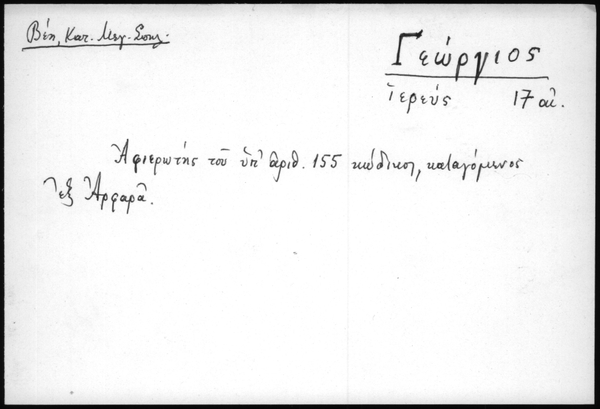 Βέη, Κατ. Μεγ. Σπηλ.
Γεώργιος
ἱερεύς 17 αἰ.
Ἀφιερωτής τοῦ ὑπ' ἀριθ. 155 κώδικος, καταγόμενος
ἐξ Ἀρφαρᾶ.